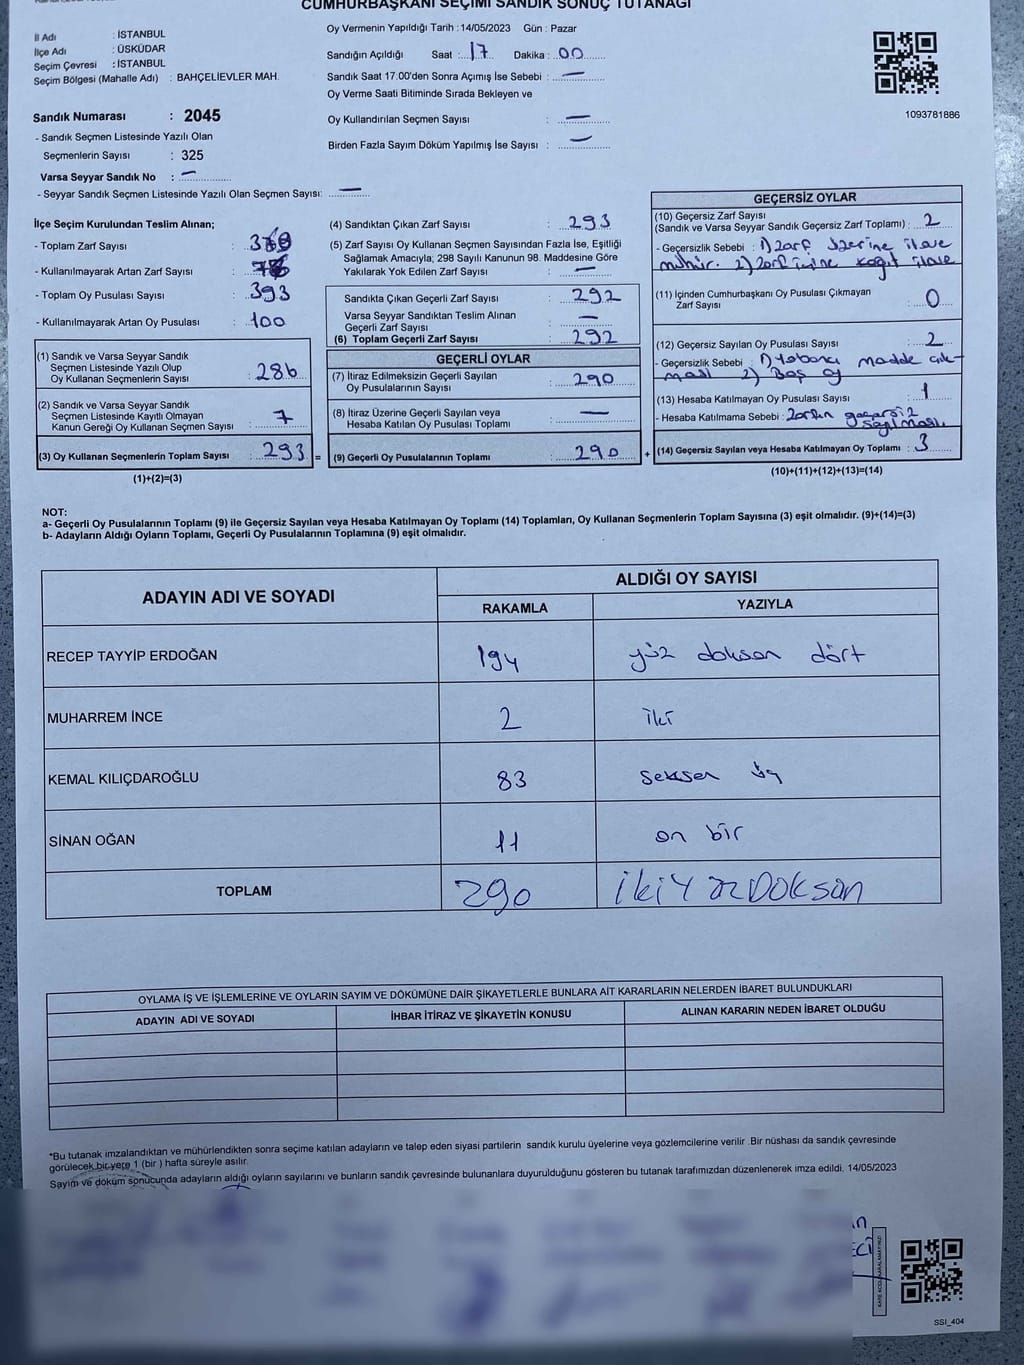 CUMHURBAŞKANI SEÇİMİ SANDIK SONUÇ TUTANAĞI
İl Adı : İSTANBUL
İlçe Adı : ÜSKÜDAR
Seçim Çevresi : İSTANBUL
Seçim Bölgesi (Mahalle Adı) : BAHÇELİEVLER MAH.
Sandık Numarası : 2045
- Sandık Seçmen Listesinde Yazılı Olan
Seçmenlerin Sayısı : 325
Varsa Seyyar Sandık No : —
- Seyyar Sandık Seçmen Listesinde Yazılı Olan Seçmen Sayısı: —
Oy Vermenin Yapıldığı Tarih : 14/05/2023 Gün : Pazar
Sandığın Açıldığı Saat : 17 Dakika : 00
Sandık Saat 17.00'den Sonra Açımış İse Sebebi : —
Oy Verme Saati Bitiminde Sırada Bekleyen ve
Oy Kullandırılan Seçmen Sayısı : —
Birden Fazla Sayım Döküm Yapılmış İse Sayısı : —
1093781886
İlçe Seçim Kurulundan Teslim Alınan;
- Toplam Zarf Sayısı :
- Kullanılmayarak Artan Zarf Sayısı :
- Toplam Oy Pusulası Sayısı : 393
- Kullanılmayarak Artan Oy Pusulası : 100
(1) Sandık ve Varsa Seyyar Sandık
Seçmen Listesinde Yazılı Olup
Oy Kullanan Seçmenlerin Sayısı : 286
(2) Sandık ve Varsa Seyyar Sandık
Seçmen Listesinde Kayıtlı Olmayan
Kanun Gereği Oy Kullanan Seçmen Sayısı : 7
(3) Oy Kullanan Seçmenlerin Toplam Sayısı : 293 =
(1)+(2)=(3)
(4) Sandıktan Çıkan Zarf Sayısı : 293
(5) Zarf Sayısı Oy Kullanan Seçmen Sayısından Fazla İse, Eşitliği
Sağlamak Amacıyla; 298 Sayılı Kanunun 98. Maddesine Göre
Yakılarak Yok Edilen Zarf Sayısı : —
Sandıkta Çıkan Geçerli Zarf Sayısı : 292
Varsa Seyyar Sandıktan Teslim Alınan
Geçerli Zarf Sayısı : —
(6) Toplam Geçerli Zarf Sayısı : 292
GEÇERLİ OYLAR
(7) İtiraz Edilmeksizin Geçerli Sayılan
Oy Pusulalarının Sayısı : 290
(8) İtiraz Üzerine Geçerli Sayılan veya
Hesaba Katılan Oy Pusulası Toplamı : —
(9) Geçerli Oy Pusulalarının Toplamı : 290 +
GEÇERSİZ OYLAR
(10) Geçersiz Zarf Sayısı
(Sandık ve Varsa Seyyar Sandık Geçersiz Zarf Toplamı) : 2
- Geçersizlik Sebebi : 1) Zarf üzerine ilave
mühür. 2) Zarf içine kağıt ilave
(11) İçinden Cumhurbaşkanı Oy Pusulası Çıkmayan
Zarf Sayısı : 0
(12) Geçersiz Sayılan Oy Pusulası Sayısı : 2
- Geçersizlik Sebebi : 1) Yabancı madde çık-
ması 2) Boş oy
(13) Hesaba Katılmayan Oy Pusulası Sayısı : 1
- Hesaba Katılmama Sebebi : Zarfın geçersiz
sayılması.
(14) Geçersiz Sayılan veya Hesaba Katılmayan Oy Toplamı : 3
(10)+(11)+(12)+(13)=(14)
NOT:
a- Geçerli Oy Pusulalarının Toplamı (9) ile Geçersiz Sayılan veya Hesaba Katılmayan Oy Toplamı (14) Toplamları, Oy Kullanan Seçmenlerin Toplam Sayısına (3) eşit olmalıdır. (9)+(14)=(3)
b- Adayların Aldığı Oyların Toplamı, Geçerli Oy Pusulalarının Toplamına (9) eşit olmalıdır.
ADAYIN ADI VE SOYADI
ALDIĞI OY SAYISI
RAKAMLA YAZIYLA
RECEP TAYYİP ERDOĞAN 194 yüz doksan dört
MUHARREM İNCE 2 iki
KEMAL KILIÇDAROĞLU 83 seksen üç
SİNAN OĞAN 11 on bir
TOPLAM 290 ikiYüzDoksan
OYLAMA İŞ VE İŞLEMLERİNE VE OYLARIN SAYIM VE DÖKÜMÜNE DAİR ŞİKAYETLERLE BUNLARA AİT KARARLARIN NELERDEN İBARET BULUNDUKLARI
ADAYIN ADI VE SOYADI İHBAR İTİRAZ VE ŞİKAYETİN KONUSU ALINAN KARARIN NEDEN İBARET OLDUĞU
*Bu tutanak imzalandıktan ve mühürlendikten sonra seçime katılan adayların ve talep eden siyasi partilerin sandık kurulu üyelerine veya gözlemcilerine verilir .Bir nüshası da sandık çevresinde
görülecek bir yere 1 (bir ) hafta süreyle asılır.
Sayım ve döküm sonucunda adayların aldığı oyların sayılarını ve bunların sandık çevresinde bulunanlara duyurulduğunu gösteren bu tutanak tarafımızdan düzenlenerek imza edildi. 14/05/2023
KARE KODU KARALAMAYINIZ!
SSİ_404